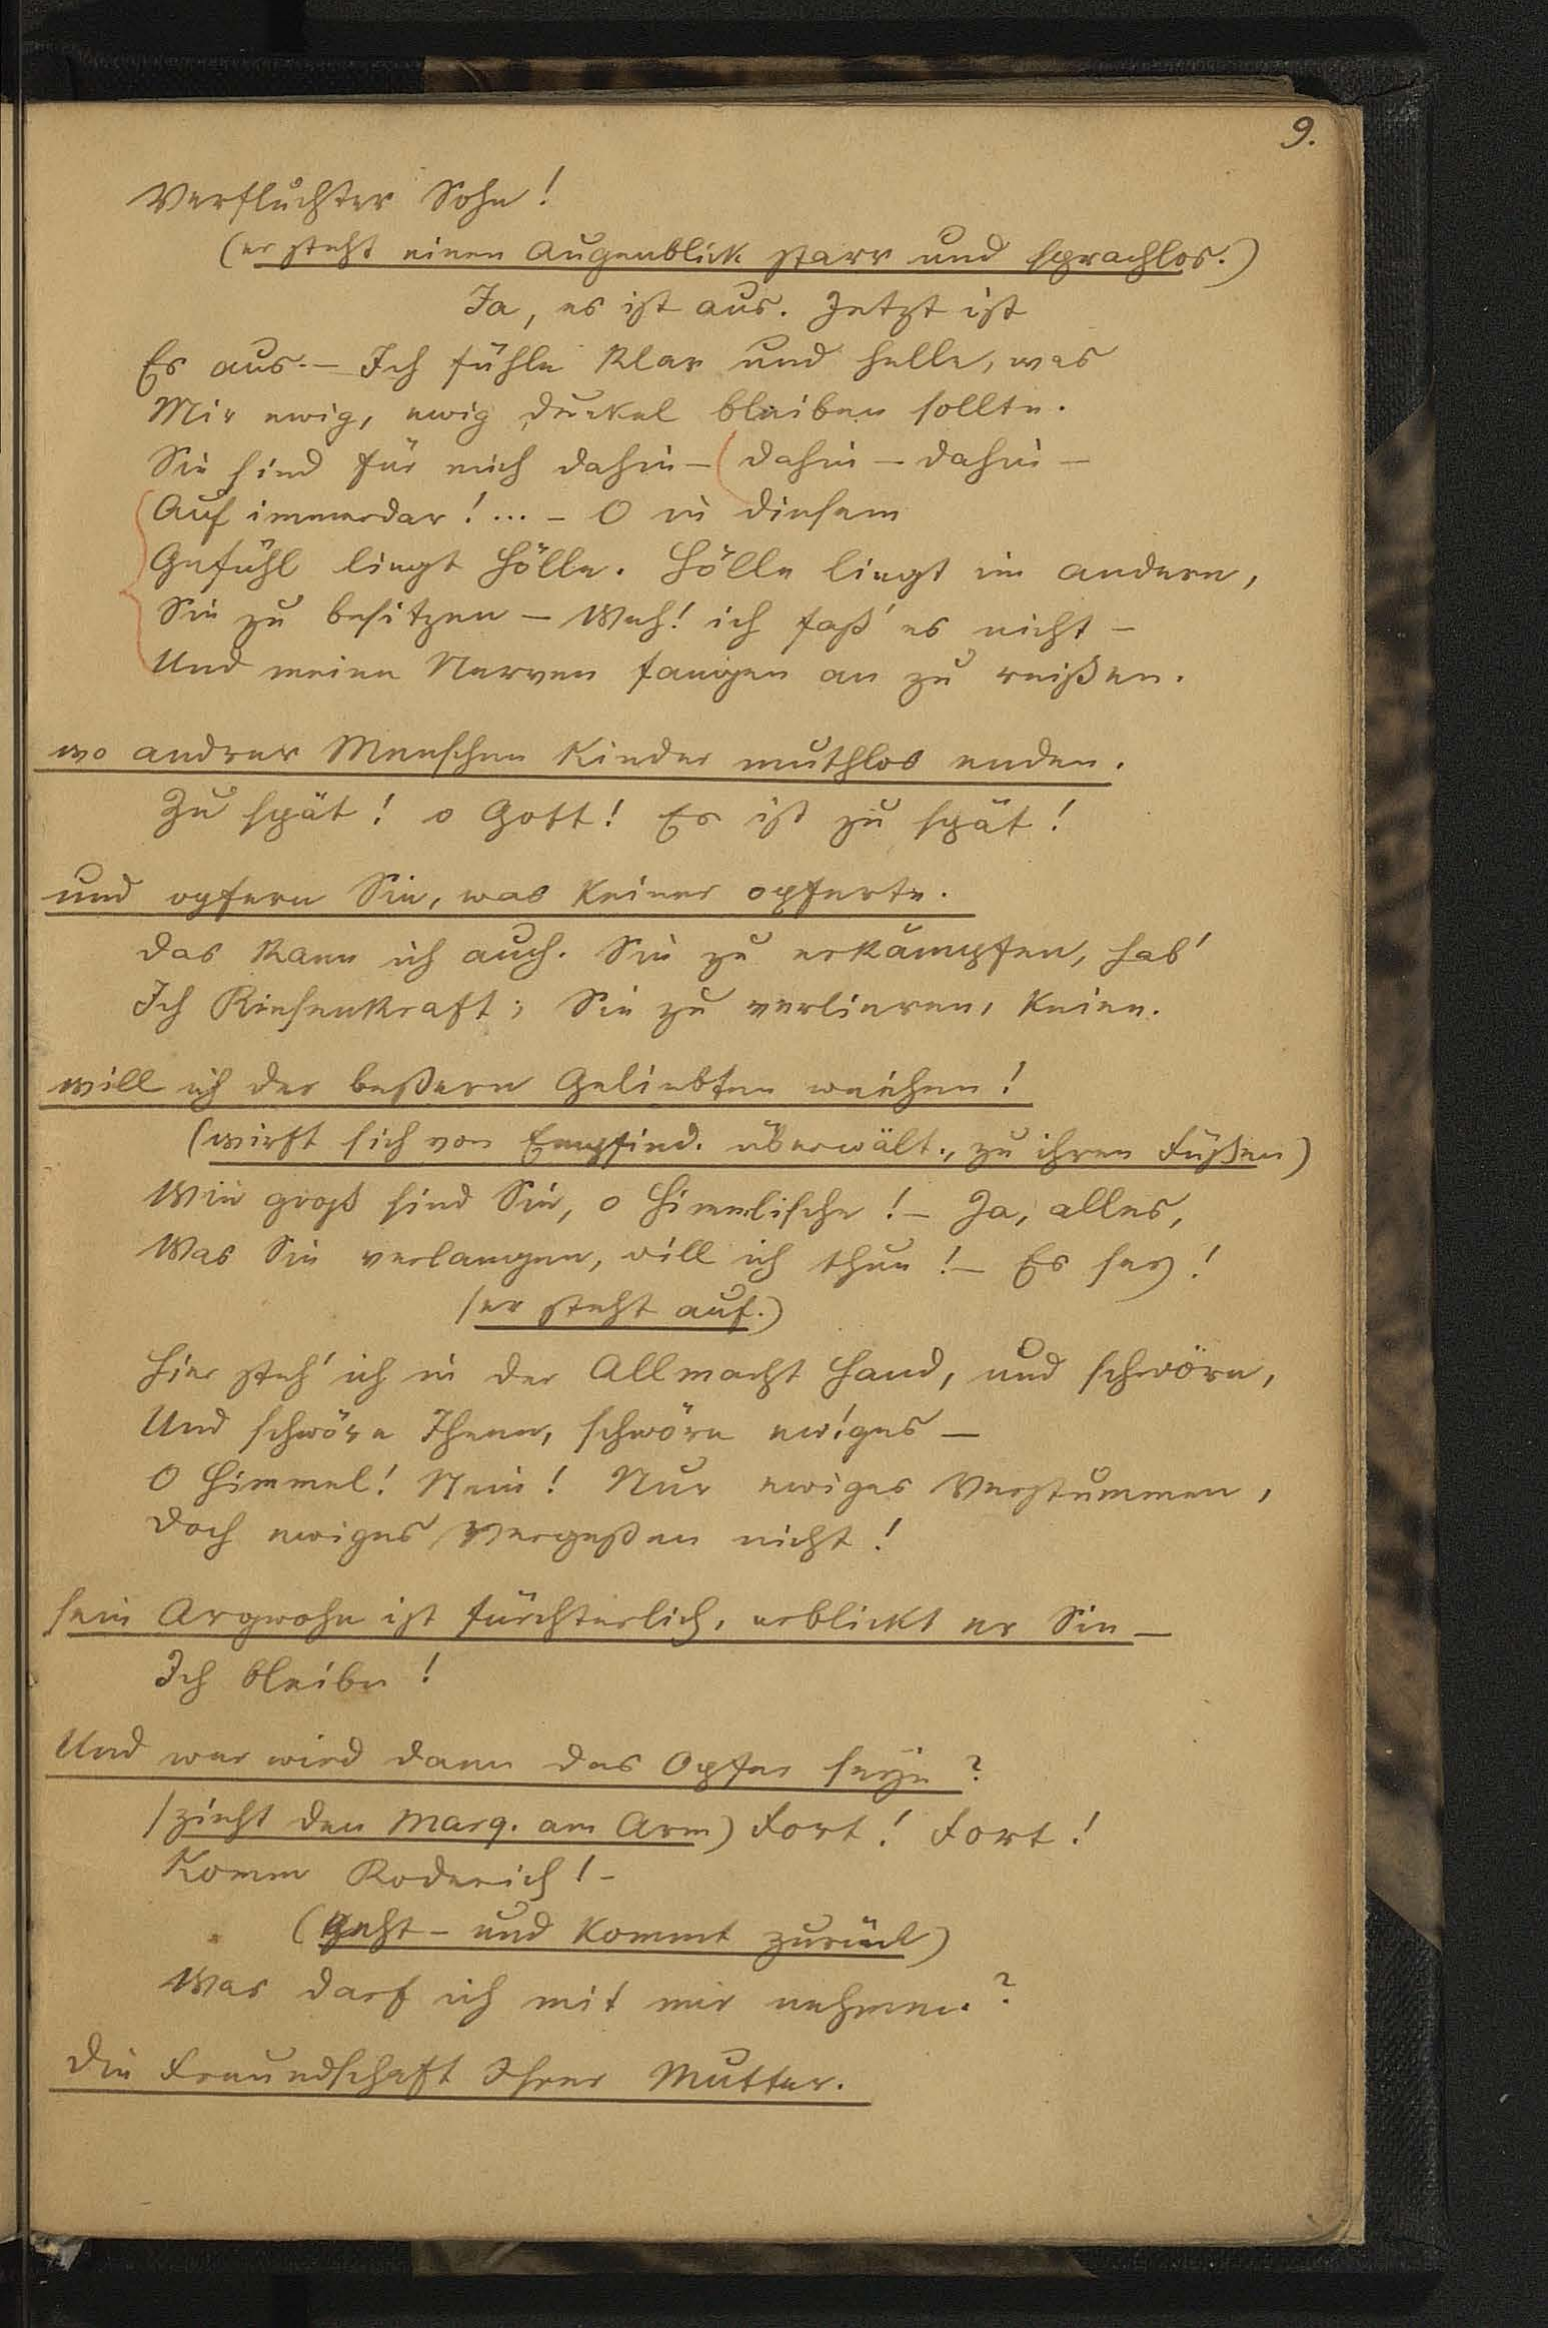 9.
Verfluchter Sohn!
(er steht einen Augenblick starr und sprachlos.)
Ja, es ist aus. Jetzt ist
Es aus. — Ich fühle klar und helle, was
Mir ewig, ewig dunkel bleiben sollte.
Sie sind für mich dahin — dahin — dahin —
Auf immerdar! ... — O in diesem
Gefühl liegt Hölle. Hölle liegt im andern,
Sie zu besitzen — Weh! ich faß' es nicht —
Und meine Nerven fangen an zu reißen.
wo andrer Menschen Kinder muthlos enden.
Zu spät! o Gott! Es ist zu spät!
und opfern Sie, was keiner opferte.
Das kann ich auch. Sie zu erkämpfen, hab'
Ich Riesenkraft; Sie zu verlieren, keine.
will ich der beßern Geliebten weichen!
(wirft sich von Empfind. überwält., zu ihren Füßen)
Wie groß sind Sie, o Himmlische! — Ja, alles,
Was Sie verlangen, will ich thun! — Es sey!
(er steht auf.)
Hier steh' ich in der Allmacht Hand, und schwöre,
Und schwöre Ihnen, schwöre ewiges —
O Himmel! Nein! Nur ewiges Verstummen,
Doch ewiges Vergeßen nicht!
sein Argwohn ist fürchterlich, erblickt er Sie —
Ich bleibe!
Und wer wird dann das Opfer seyn?
(zieht den Marq. am Arm) Fort! Fort!
Komm Roderich! —
(Geht — und kommt zurück)
Was darf ich mit mir nehmen?
Die Freundschaft Ihrer Mutter.